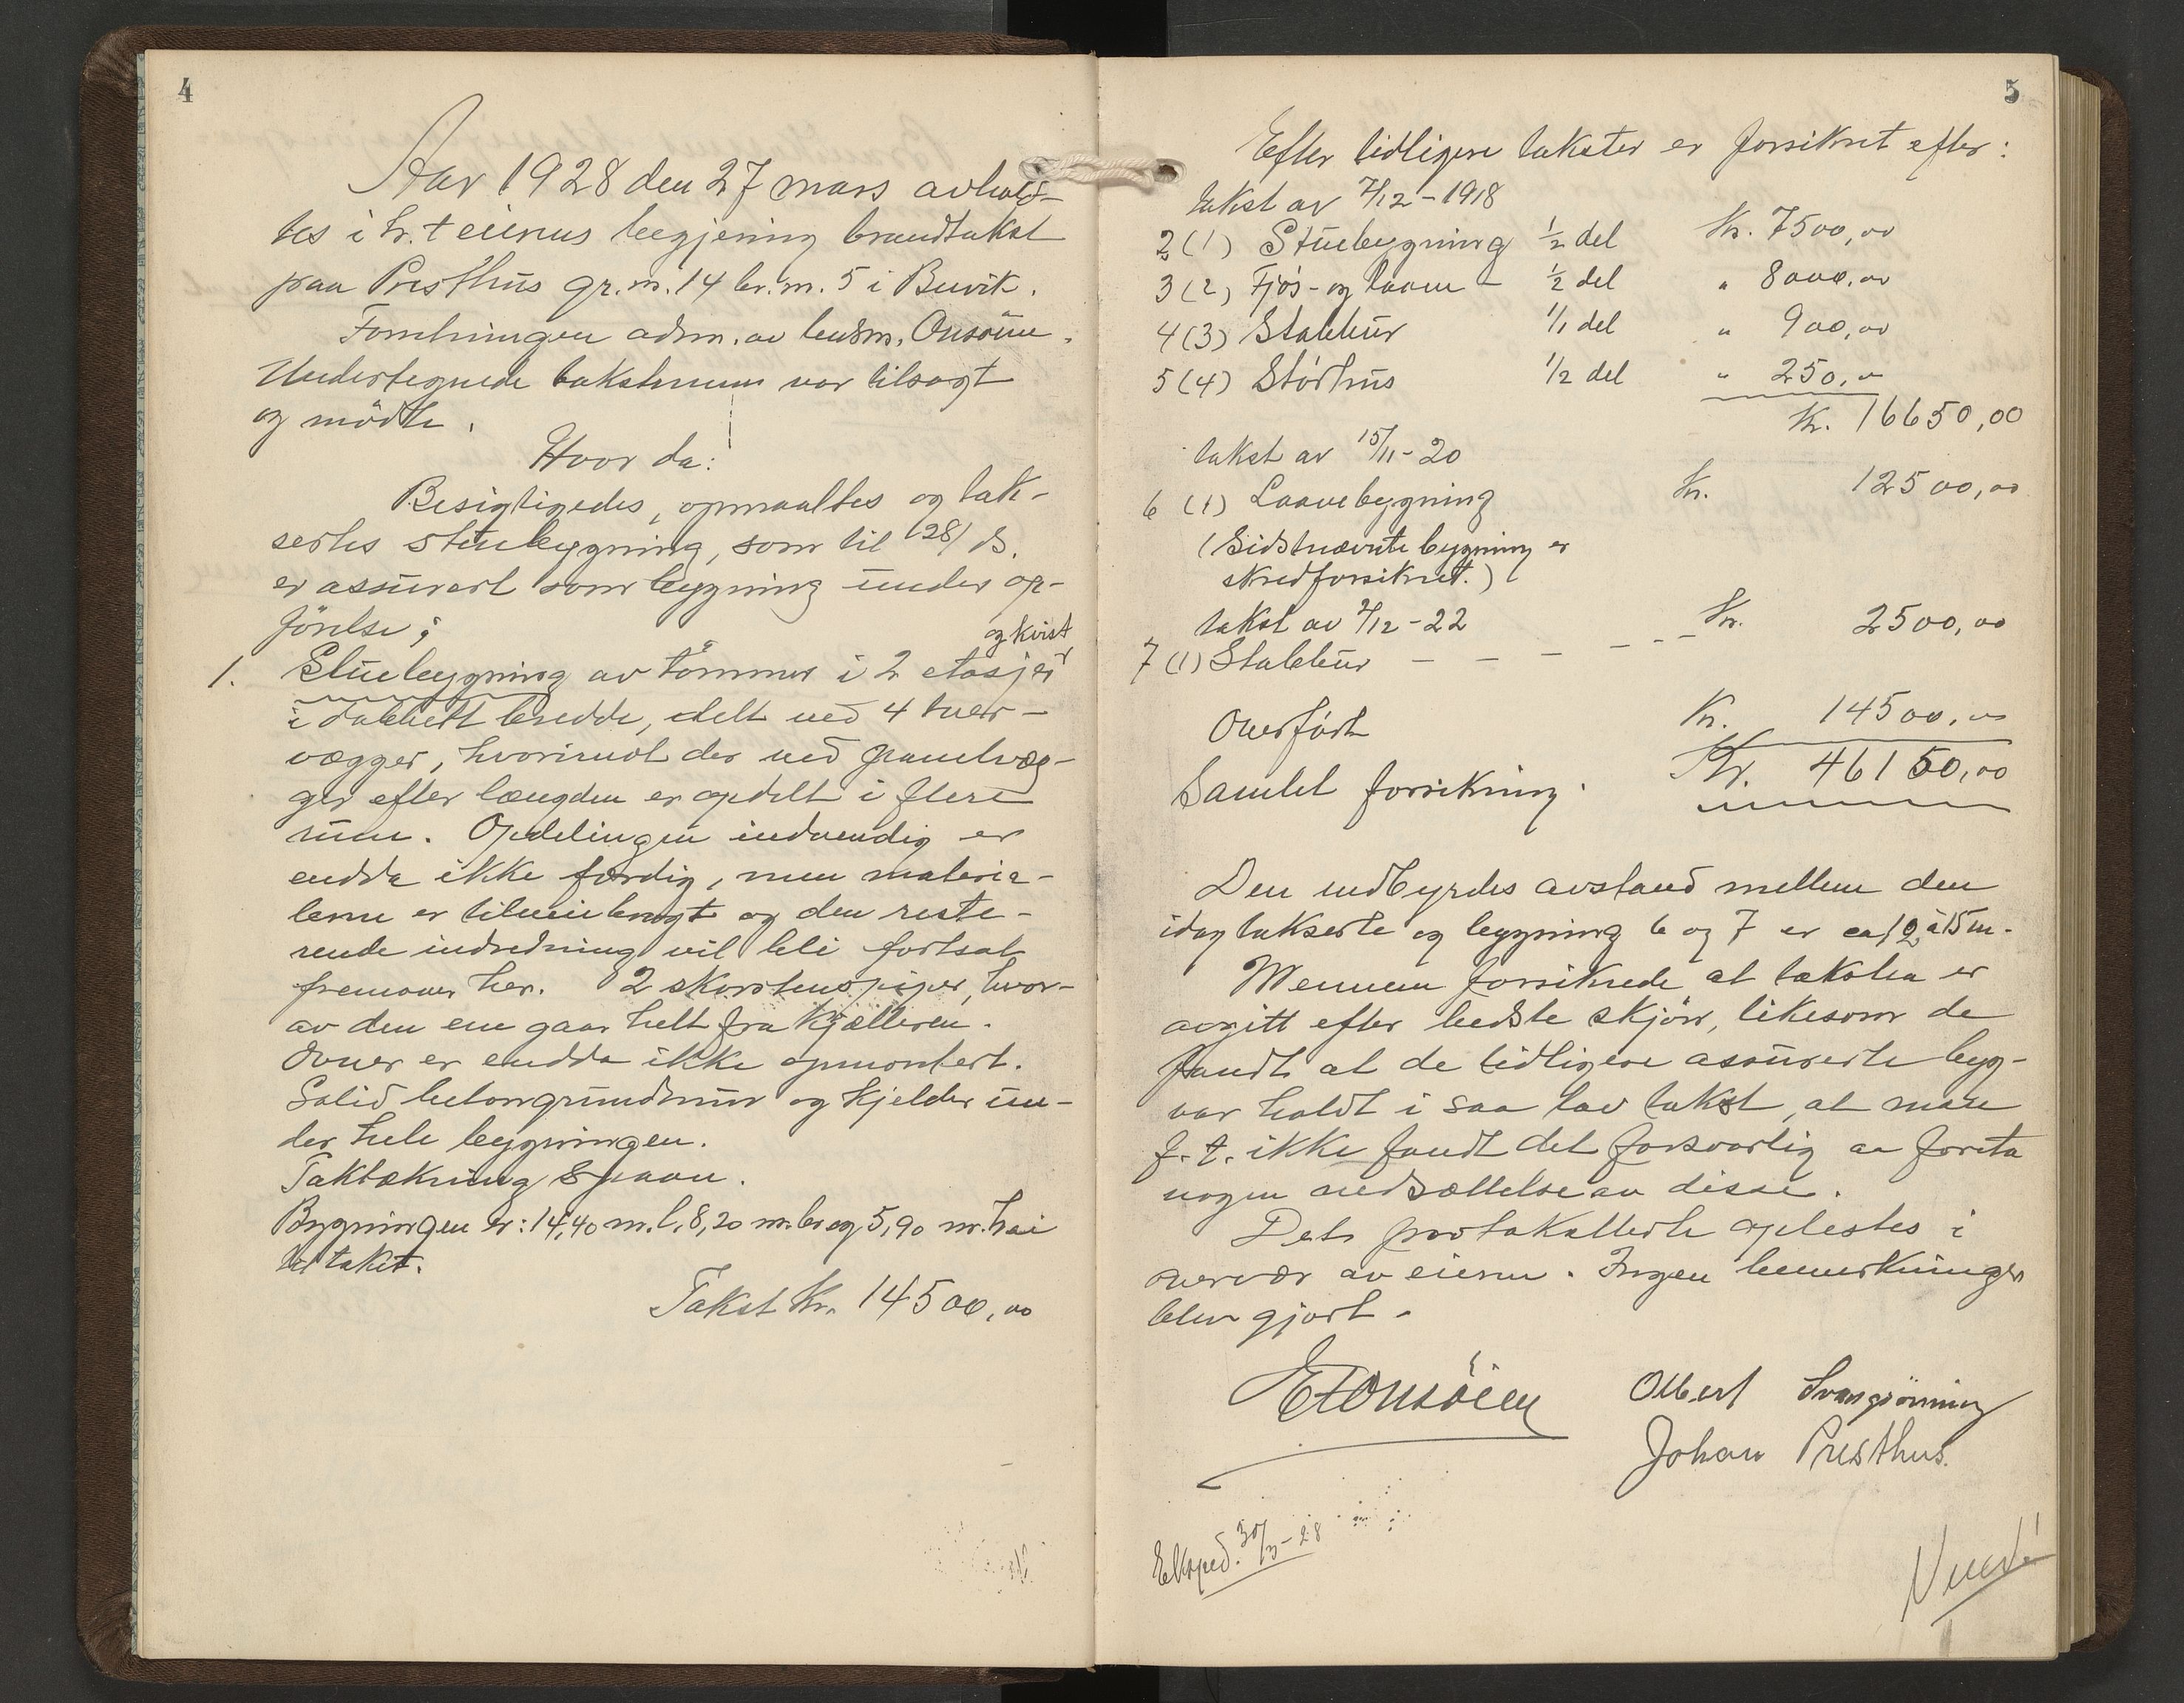 4
Aar 1928 den 27 mars avhold-
tes i h.t eierens begjering brandtakst
paa Presthus gr.n. 14 br.n. 5 i Buvik.
Forretningen adm. av lensm. Onsøien.
Undertegnede takstmenn var tilsagt
og mödte.
Hvor da:
Besigtigedes, opmaaltes og tak-
sertes stuebygning, som til (28) ds.
er assurert som bygning under op-
førelse;
og kvist
1. Stuebygning av tømmer i 2 etasjer
i dobbelt bredde, delt ved 4 tver-
vægger, hvorimot der ved panelvæg-
ger efter længden er opdelt i flere
rum. Opdelingen indvendig er
endda ikke færdig, men materia-
lerne er tilveiebragt og den reste-
rende indredning vil bli fortsat
fremover her. 2 skorstenspiper, hvor-
av den ene gaar helt fra kjælleren.
Ovner er endda ikke opmontert.
Solid betongrundmur og kjelder un-
der hele bygningen.
Taktækning spaan.
Bygningen er: 14,40 m. l., 8,20 m. br og 5,90 m. höi
til taket.
Takst Kr. 14500,00
5
Efter tidligere takster er forsikret efter:
takst av 7/12 - 1918
2 (1) Stuebygning 1/2 del Kr. 7500,00
3 (2) Fjøs- og laave - 1/2 del " 8000,00
4 (3) Stabbur 1/1 del " 900,00
5 (4) Størhus 1/2 del " 250,00
Kr. 16650,00
takst av 15/11 - 20
6 (1) Laavebygning Kr. 12500,00
(Sidstnævnte bygning er
skredforsikret.)
takst av 4/12 - 22 Kr. 2500,00
7 (1) Stabbur - - - - - -
Overført Kr. 14500,00
Samlet forsikring Kr. 46150,00
Den indbyrdes avstand mellem den
idag takserte og bygning 6 og 7 er ca 12 à 15 m.
Mennene forsikrede at taksten er
avgitt efter bedste skjøn, likesom de
fandt at de tidligere assurerte byg-
var holdt i saa lav takst, at man
f. t. ikke fandt det forsvarlig aa foreta
nogen nedsættelse av disse.
Det protokollerte oplestes i
overvær av eieren. Ingen bemerkninger
blev gjort -
E Onsøien Olbert Svangrönning
Johan Presthus.
Eksped. 30/3 - 28